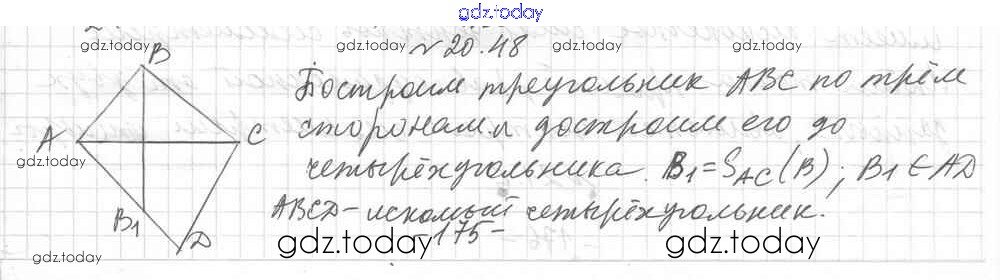 gdz.today
№ 20.48
gdz.today gdz.today gdz.today
B
Построим треугольник ABC по трём
A C
сторонам и достроим его до
gdz.today gdz.today gdz.today
четырёхугольника. B₁=S_AC(B); B₁∈AD
ABCD - искомый четырёхугольник.
B₁
D
-175-
gdz.today gdz.today gdz.today